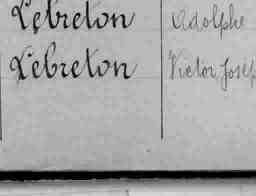 Lebreton Adolphe
Lebreton Victor Josep